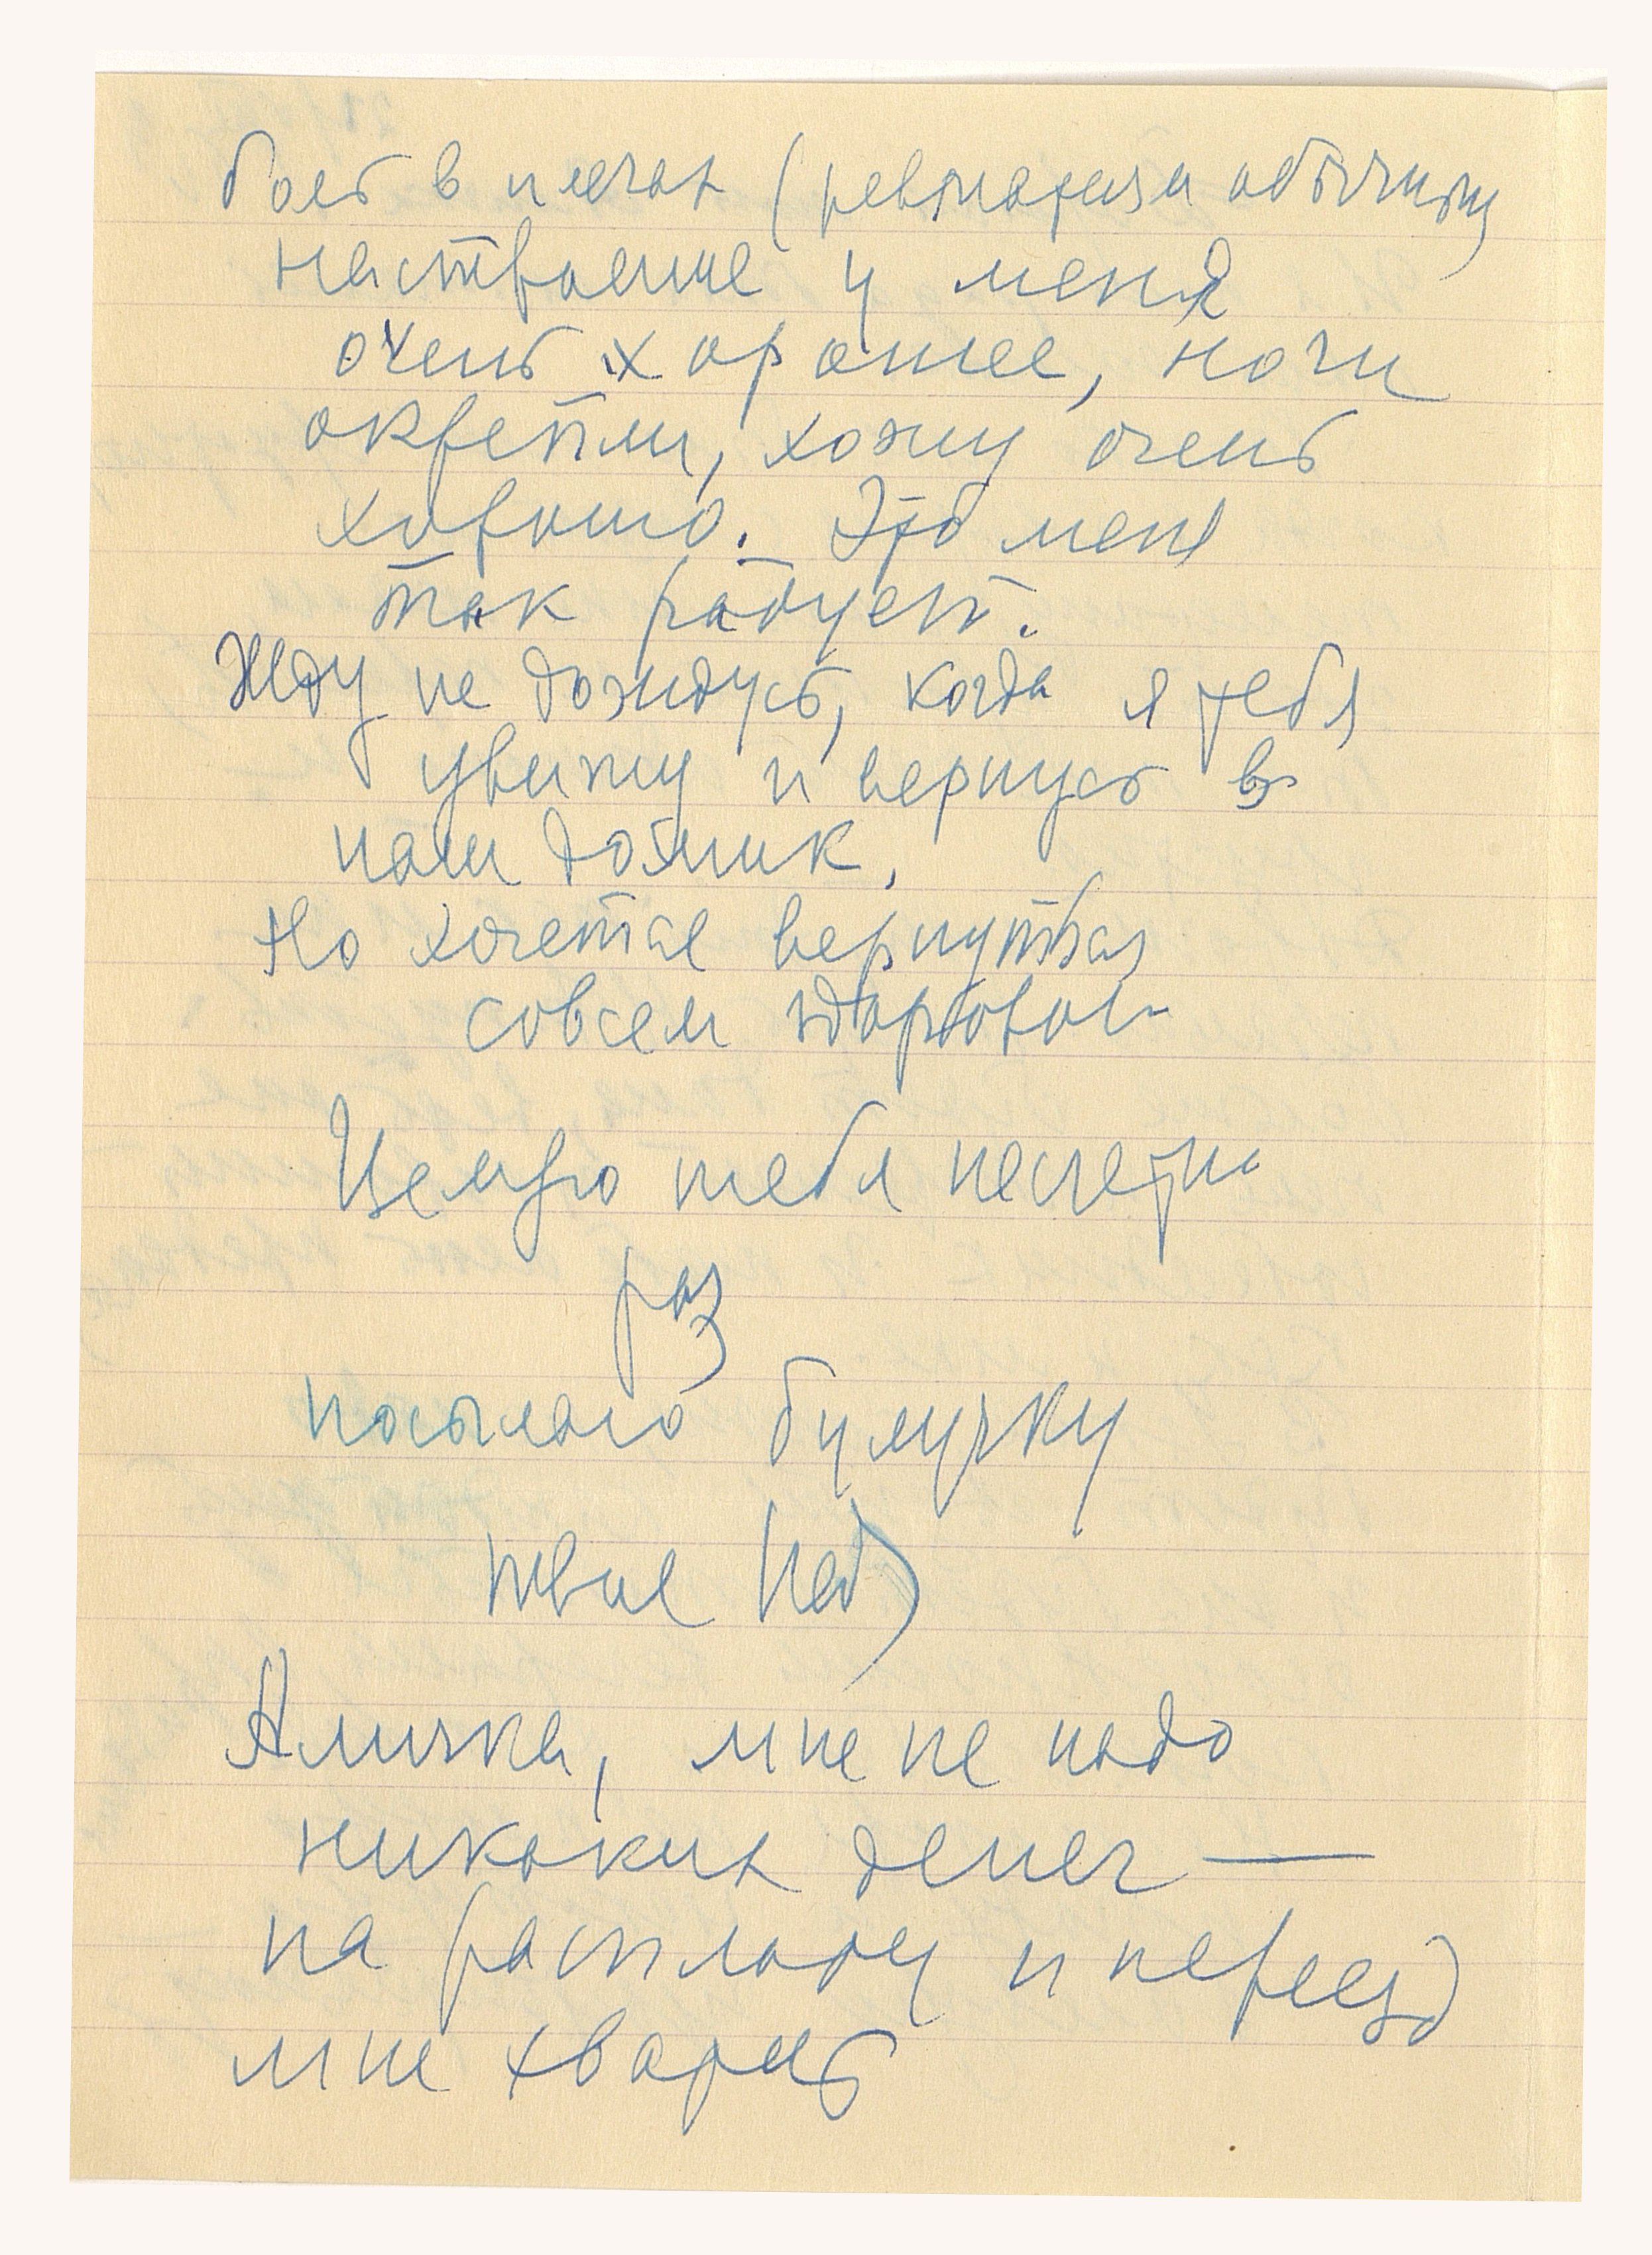 боль в плечах (ревматизм обычный)
настроение у меня
очень хорошее, ноги
окрепли, хожу очень
хорошо. Это меня
так радует.
Жду не дождусь, когда я тебя
увижу и вернусь в
наш домик.
Но хочется вернуться
совсем здоровой
Целую тебя несчетно
раз
посылаю булучку
твие
Аличка, мне не надо
никаких денег —
на расплату и переезд
мне хватит